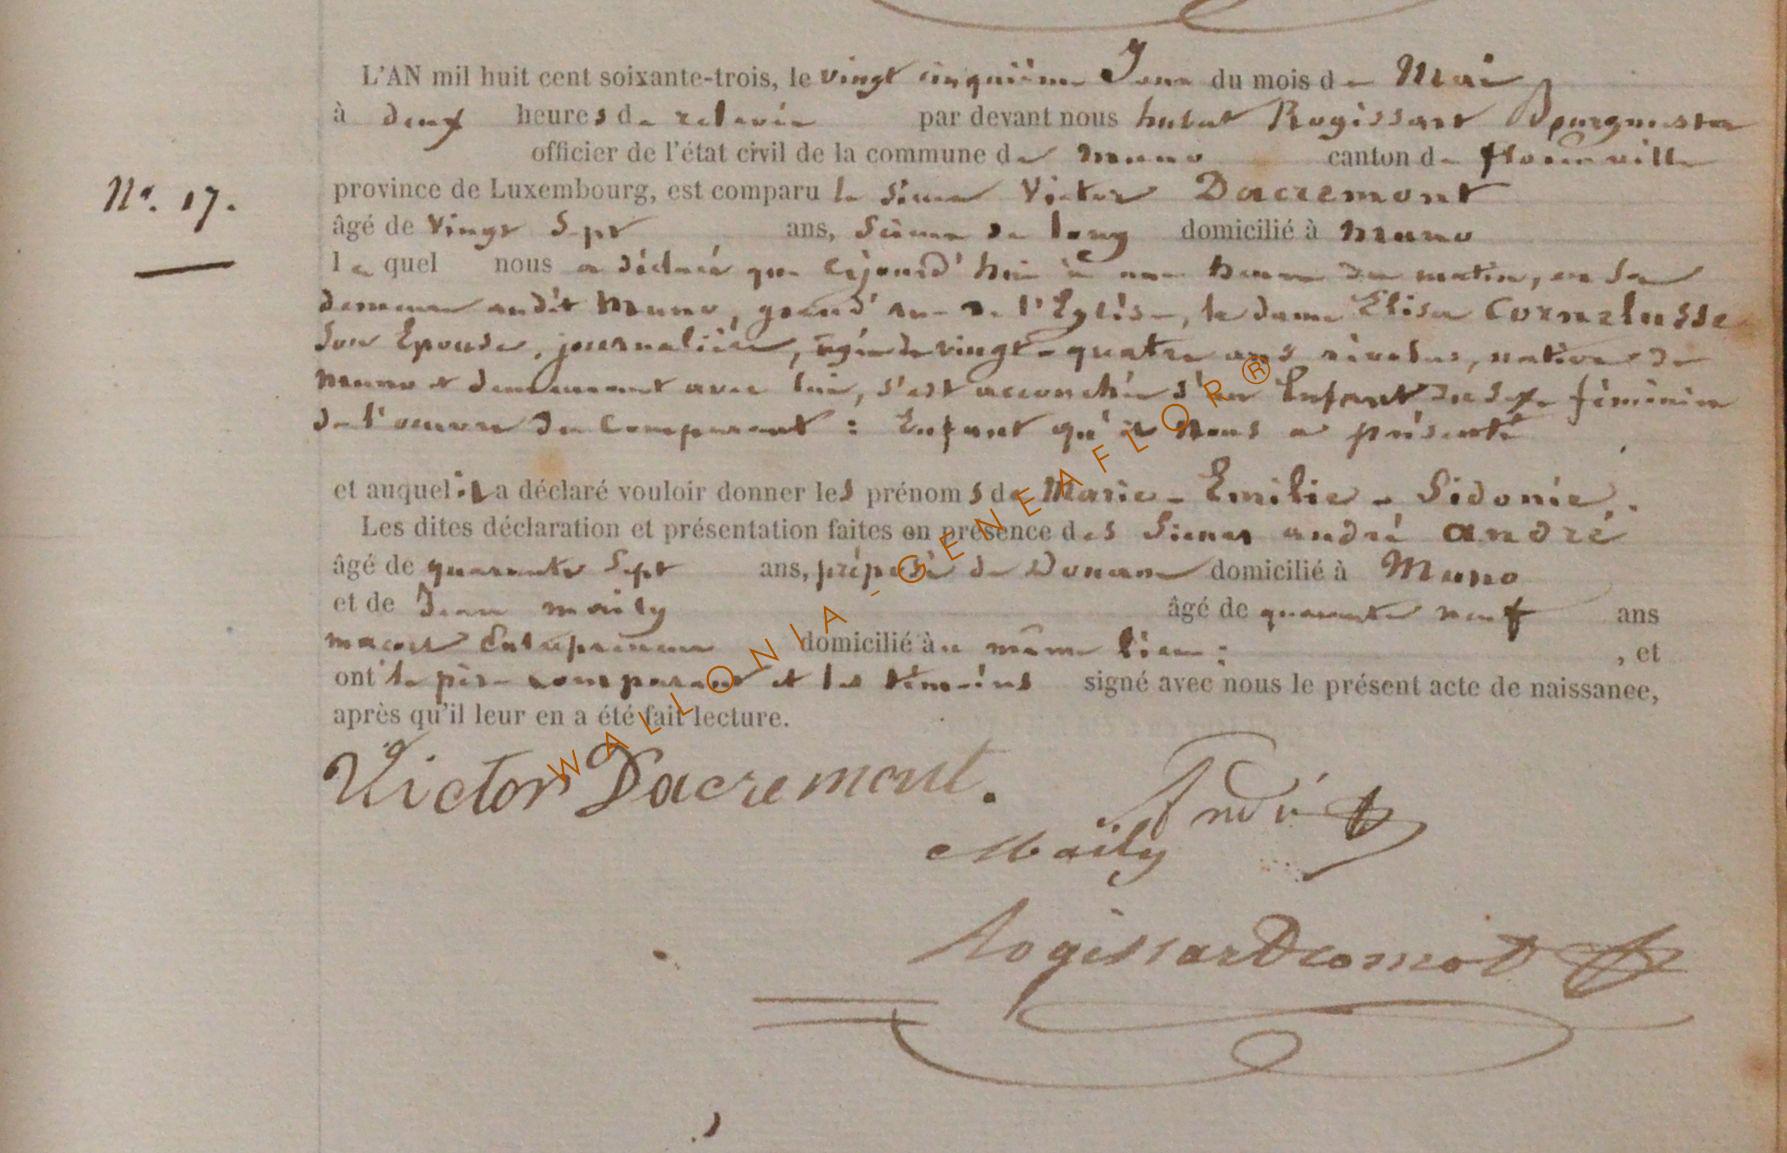 L'AN mil huit cent soixante-trois, le vingt cinquième Jour du mois de Mai
à deux heures de relevée par devant nous hubert Rogissart Bourgmestre
officier de l'état civil de la commune de muno canton de florenville
province de Luxembourg, est comparu le sieur Victor Dacremont
N°. 17.
âgé de vingt Sept ans, Scieur de long domicilié à muno
lequel nous a déclaré que cejourd'hui à une heure du matin, en sa
demeure audit Muno, grand'rue de l'Eglise, la dame Elisa Cornelusse
son Epouse, journalière, agée de vingt-quatre ans révolus, native de
Muno et demeurant avec lui, s'est accouchée d'un Enfant du sexe féminin
de l'œuvre du Comparant : Enfant qu'il Nous a présenté
et auquel il a déclaré vouloir donner les prénoms de Marie - Emilie - Sidonie.
Les dites déclaration et présentation faites en présence des Sieurs andré andré
âgé de quarante Sept ans, préposé de Douane domicilié à Muno
et de Jean maily âgé de quarante neuf ans
macon Entrepreneur domicilié au même lieu ; , et
ont le père comparant et les témoins signé avec nous le présent acte de naissance,
après qu'il leur en a été fait lecture.
Victor Dacremont.
André
Maïly
Rogissart
WALLONIA-GENEAFLOR®